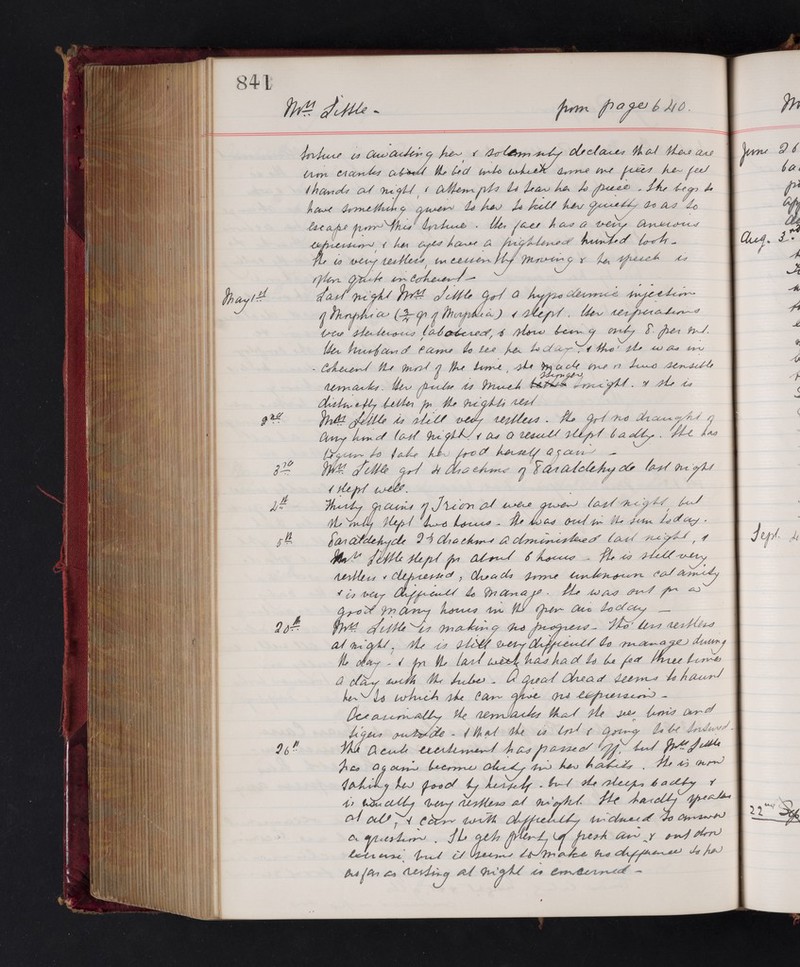 841
Mrs Little - from page 640.
torture is awaiting her, & solemnly declares that there are
iron cranks about the bed into which some one fixes her feet
& hands at night, & attempts to tear her to pieces. She begs to
have something given to her to kill her quietly so as to
escape from this torture. Her face has a very anxious
expression, & her eyes have a frightened hunted look -
She is very restless, incessantly moving & her speech is
often quite incoherent -
May 1st Last night Mrs Little got a hypodermic injection
of Morphia ( gr of Morphia) & slept. Her respirations
were stertorous, laboured, & slow being only 8 per mt.
Her husband came to see her today, & tho' she was in
-coherent the most of the time, she made one or two sensible
remarks. Her pulse is much stronger tonight. & she is
distinctly better for the nights rest.
2nd Mrs Little is still very restless. She got no draught of
any kind last night & as a result slept badly. She has
begun to take her food herself again -
3rd Mrs Little got 2 drachms of Paraldehyde last night
& slept well.
4th Thirty grains of Trional were given last night, but
she only slept two hours. She was out in the sun today.
5th Paraldehyde drachms administered last night, &
Mrs Little slept for about 6 hours. She is still very
restless & depressed, dreads some unknown calamity
& is very difficult to manage. She was out for a
good many hours in the open air today -
20th Mrs Little is making no progress. Tho' less restless
at night, she is still very difficult to manage during
the day - & for the last week has had to be fed three times
a day with the tube. A great dread seems to haunt
her to which she can give no expression -
Occasionally she remarks that she sees lions and
tigers outside - & that she is lost & going to be tortured.
26th The acute excitement has passed off, but Mrs Little
has again become dirty in her habits. She is now
taking her food by herself - but she sleeps badly &
is usually very restless at night. She hardly speaks
at all, & can with difficulty be induced to answer
a question. She gets plenty of fresh air & out door
exercise, but it seems to make no difference to her
as far as resting at night is concerned -
June 26
Aug. 3rd
Sept.
22nd Sep